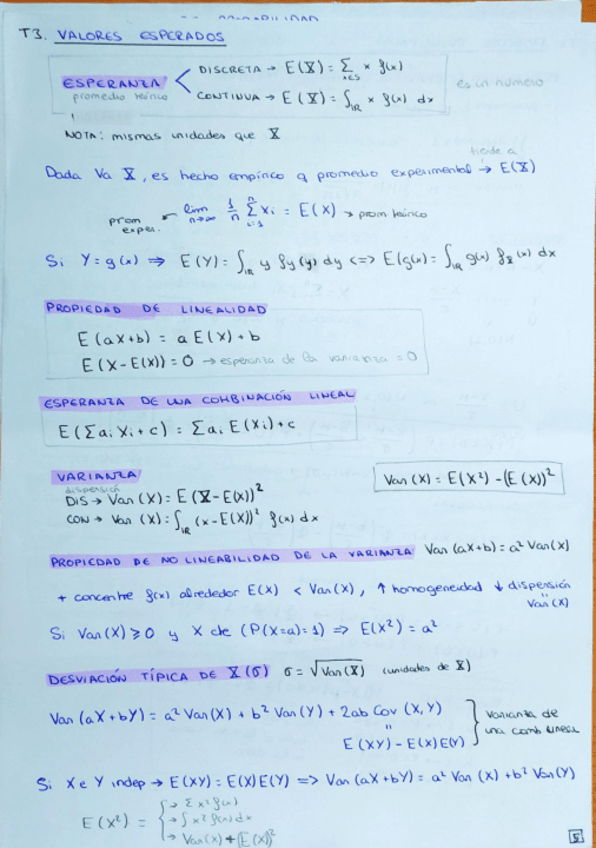 T3. VALORES ESPERADOS
ESPERANZA
promedio teórico
DISCRETA → E(X) = ∑ x∈S x f(x)
CONTINUA → E(X) = ∫ℝ x f(x) dx
es un número
NOTA: mismas unidades que X
Dada Va X, es hecho empírico q promedio experimental tiende a → E(X)
prom exper. ← lim n→∞ 1/n ∑ i=1 n Xi = E(X) → prom teórico
Si Y = g(x) ⇒ E(Y) = ∫ℝ y fy(y) dy <=> E(g(x) = ∫ℝ g(x) fX(x) dx
PROPIEDAD DE LINEALIDAD
E(aX+b) = a E(X) + b
E(X-E(X)) = 0 → esperanza de la varianza = 0
ESPERANZA DE UNA COMBINACIÓN LINEAL
E(∑ai Xi + c) = ∑ai E(Xi) + c
VARIANZA
dispersión
DIS → Var(X) = E(X-E(X))²
CON → Var(X) = ∫ℝ (x-E(X))² f(x) dx
Var(X) = E(X²) - (E(X))²
PROPIEDAD DE NO LINEABILIDAD DE LA VARIANZA Var(aX+b) = a² Var(X)
+ concentre f(x) alrededor E(X) < Var(X), ↑ homogeneidad ↓ dispersión
"
Var(X)
Si Var(X) ≥ 0 y X cte (P(X=a)=1) ⇒ E(X²) = a²
DESVIACIÓN TÍPICA DE X (σ) σ = √Var(X) (unidades de X)
Var(aX+bY) = a² Var(X) + b² Var(Y) + 2ab Cov(X,Y)
"
E(XY) - E(X)E(Y)
Varianza de
una comb lineal
Si X e Y indep → E(XY) = E(X)E(Y) => Var(aX+bY) = a² Var(X) + b² Var(Y)
E(X²) =
→ ∑ x² f(x)
→ ∫ x² f(x) dx
→ Var(X) + (E(X))²
5